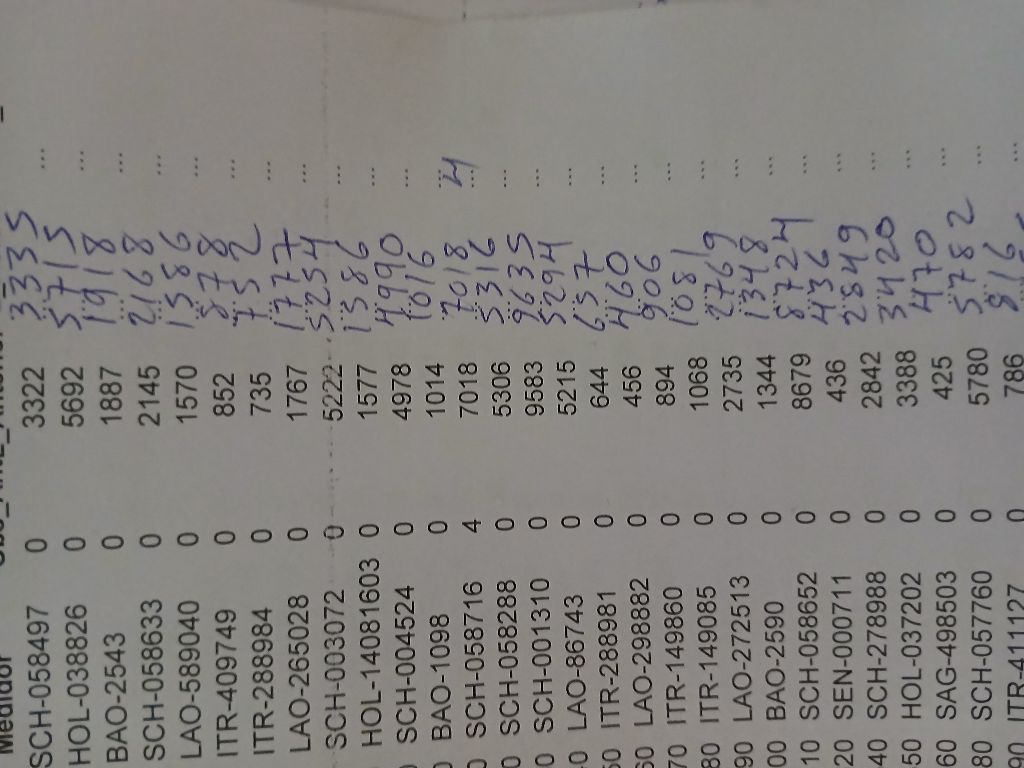 Medidor
SCH-058497 0 3322 3335 ...
HOL-038826 0 5692 5715 ...
BAO-2543 0 1887 1918 ...
SCH-058633 0 2145 2168 ...
LAO-589040 0 1570 1586 ...
ITR-409749 0 852 878 ...
ITR-288984 0 735 752 ...
LAO-265028 0 1767 1777 ...
SCH-003072 0 5222 5254 ...
HOL-14081603 0 1577 1586 ...
SCH-004524 0 4978 4990 ...
BAO-1098 0 1014 1016 ...
SCH-058716 4 7018 7018 4
SCH-058288 0 5306 5316 ...
0 SCH-001310 0 9583 9635 ...
0 LAO-86743 0 5215 5294 ...
50 ITR-288981 0 644 657 ...
60 LAO-298882 0 456 460 ...
70 ITR-149860 0 894 906 ...
80 ITR-149085 0 1068 1081 ...
90 LAO-272513 0 2735 2769 ...
00 BAO-2590 0 1344 1348 ...
10 SCH-058652 0 8679 8724 ...
20 SEN-000711 0 436 436 ...
40 SCH-278988 0 2842 2849 ...
50 HOL-037202 0 3388 3420 ...
60 SAG-498503 0 425 470 ...
80 SCH-057760 0 5780 5782 ...
90 ITR-411127 0 786 816 ...